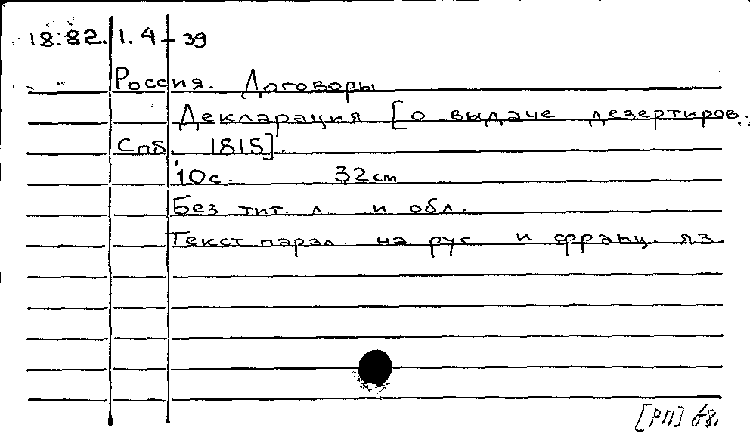 18:82. 1.4-39
Россия. Договоры
Декларация [о выдаче дезертиров.
Спб. 1815].
10с. 32cm
Без тит. л. и обл.
Текст парал на рус и франц. яз.
[РП] 68.